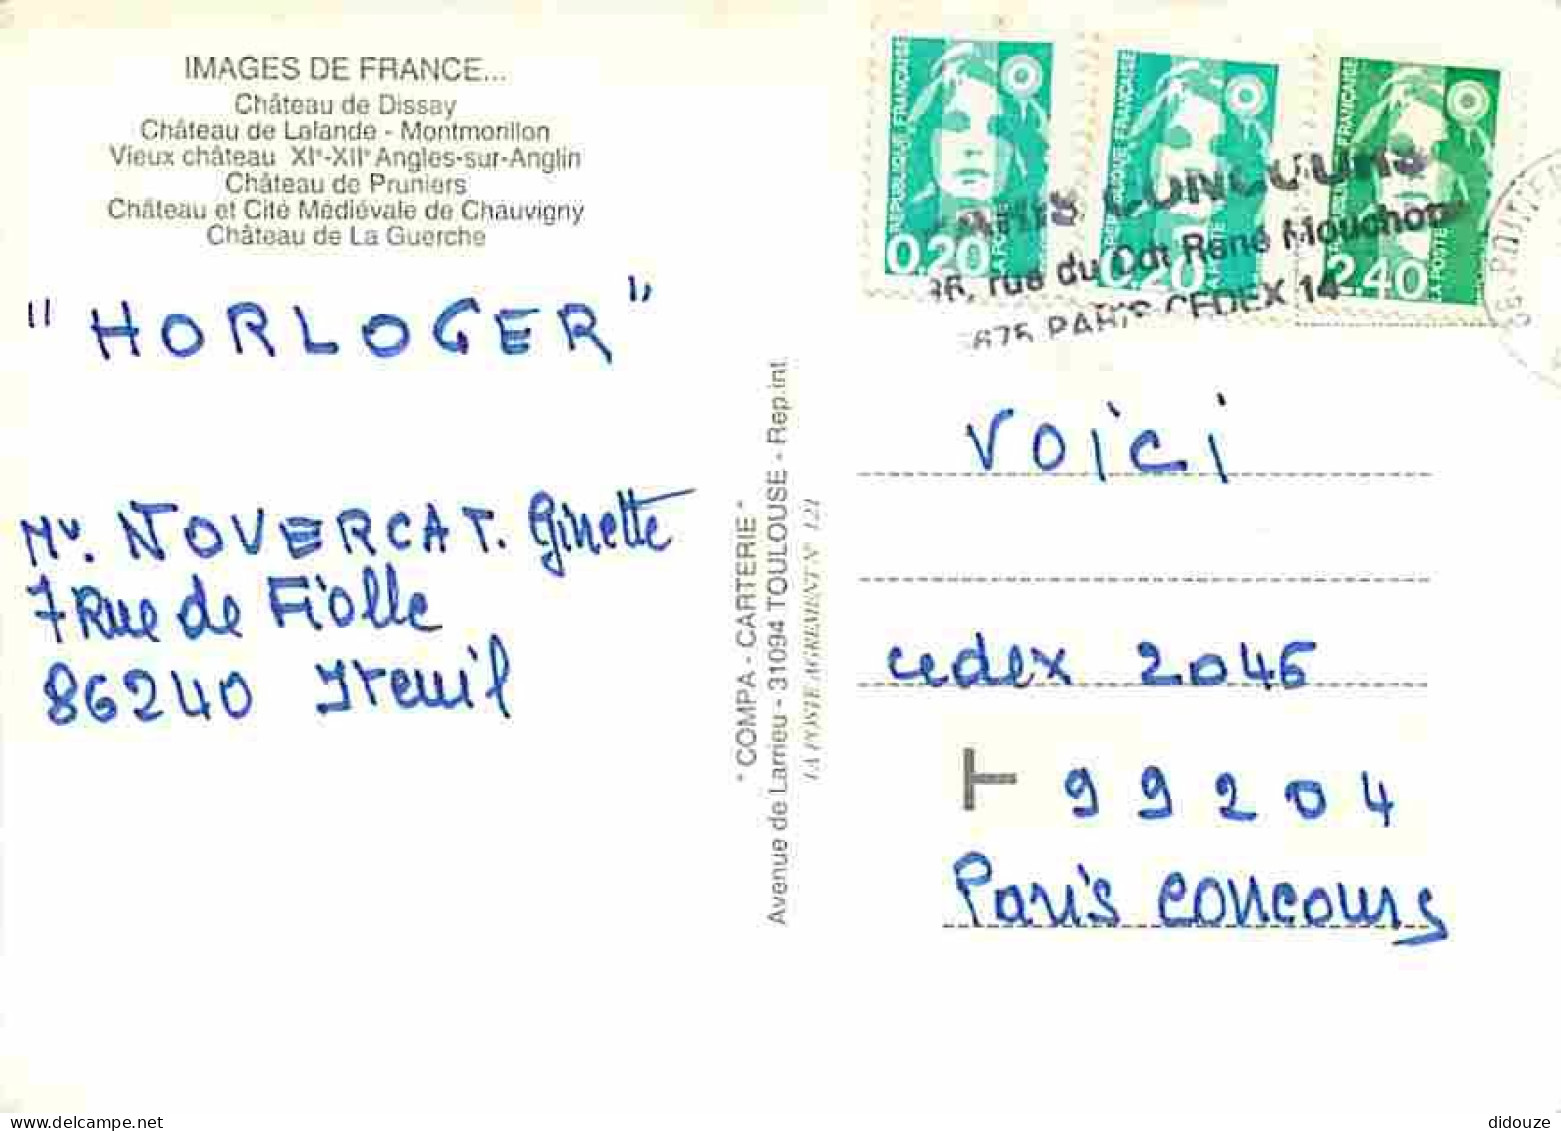 IMAGES DE FRANCE...
Château de Dissay
Château de Lalande - Montmorillon
Vieux château XIᵉ-XIIᵉ Angles-sur-Anglin
Château de Pruniers
Château et Cité Médiévale de Chauvigny
Château de La Guerche
" HORLOGER "
Mr. NOVERCAT. Ginette
7 Rue de Fiolle
86240 Iteuil
" COMPA - CARTERIE "
Avenue de Larrieu - 31094 TOULOUSE - Rep.int.
LA POSTE AGREMENT N° 121
REPUBLIQUE FRANÇAISE
0.20
LA POSTE
REPUBLIQUE FRANÇAISE
0.20
LA POSTE
FRANCAISE
2.40
LA POSTE
PARIS CONCOURS
36, rue du Cdt René Mouchotte
675 PARIS CEDEX 14
VOICI
cedex 2046
99204
Paris concours
delcampe.net
didouze